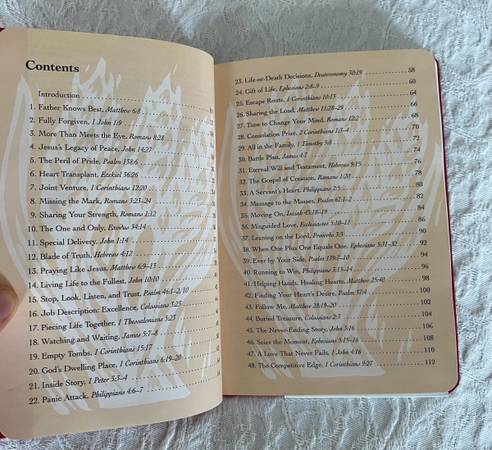 Contents
Introduction
1. Father Knows Best, Matthew 6:8
2. Fully Forgiven, 1 John 1:9
3. More Than Meets the Eye, Romans 8:28
4. Jesus's Legacy of Peace, John 14:27
5. The Peril of Pride, Psalm 138:6
6. Heart Transplant, Ezekiel 36:26
7. Joint Venture, 1 Corinthians 12:20
8. Missing the Mark, Romans 3:23–24
9. Sharing Your Strength, Romans 1:12
10. The One and Only, Exodus 34:14
11. Special Delivery, John 1:14
12. Blade of Truth, Hebrews 4:12
13. Praying Like Jesus, Matthew 6:9–13
14. Living Life to the Fullest, John 10:10
15. Stop, Look, Listen, and Trust, Psalm 46:1–2, 10
16. Job Description: Excellence, Colossians 3:23
17. Piecing Life Together, 1 Thessalonians 5:23
18. Watching and Waiting, James 5:7–8
19. Empty Tombs, 1 Corinthians 15:17
20. God's Dwelling Place, 1 Corinthians 6:19–20
21. Inside Story, 1 Peter 3:3–4
22. Panic Attack, Philippians 4:6–7
23. Life-or-Death Decisions, Deuteronomy 30:19 58
24. Gift of Life, Ephesians 2:8–9 60
25. Escape Route, 1 Corinthians 10:13 64
26. Sharing the Load, Matthew 11:28–29 66
27. Time to Change Your Mind, Romans 12:2 68
28. Consolation Prize, 2 Corinthians 1:3–4 70
29. All in the Family, 1 Timothy 5:8 72
30. Battle Plan, James 4:7 74
31. Eternal Will and Testament, Hebrews 9:15 76
32. The Gospel of Creation, Romans 1:20 78
33. A Servant's Heart, Philippians 2:5
34. Message to the Masses, Psalm 67:1–2 82
35. Moving On, Isaiah 43:18–19 84
36. Misguided Love, Ecclesiastes 5:10–11 86
37. Leaning on the Lord, Proverbs 3:5 90
38. When One Plus One Equals One, Ephesians 5:31–32 92
39. Ever by Your Side, Psalm 139:7–10 94
40. Running to Win, Philippians 3:13–14 96
41. Helping Hands, Healing Hearts, Matthew 25:40 98
42. Finding Your Heart's Desire, Psalm 37:4 100
43. Follow Me, Matthew 28:19–20 102
44. Buried Treasure, Colossians 2:3 104
45. The Never-Ending Story, John 3:16 106
46. Seize the Moment, Ephesians 5:15–16 108
47. A Love That Never Fails, 1 John 4:16 110
48. The Competitive Edge, 1 Corinthians 9:27 112